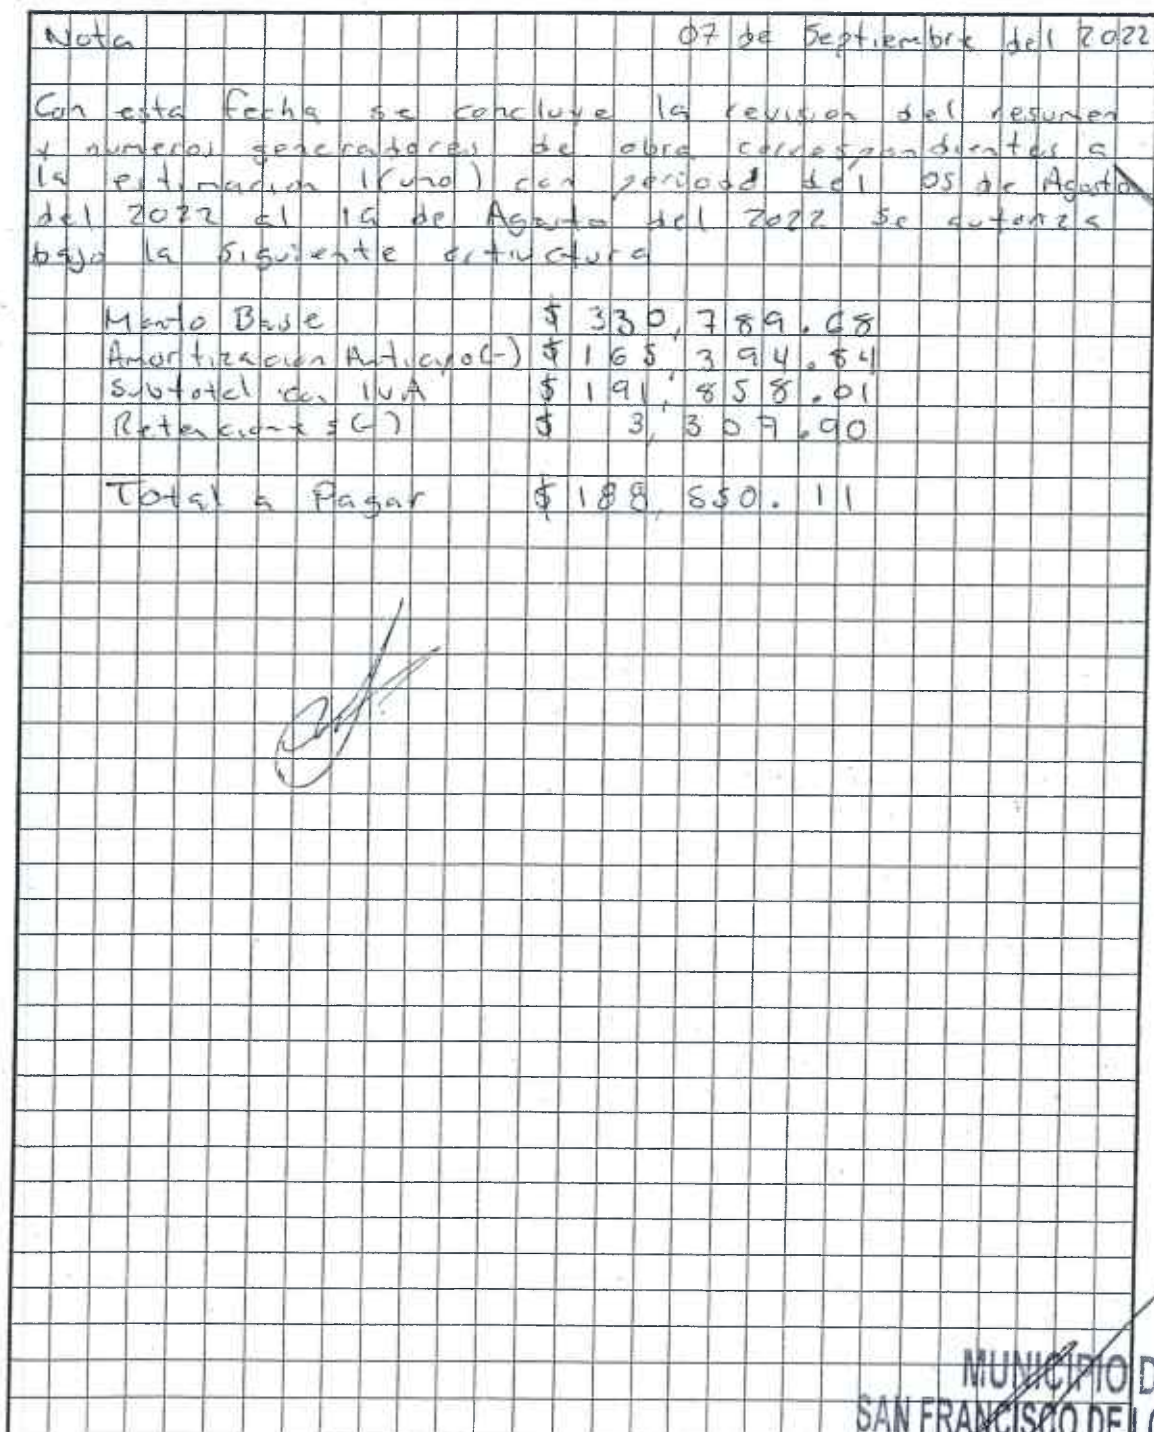 Nota 07 de Septiembre del 2022
Con esta fecha se concluye la revision del resumen
y numeros generadores de obra correspondientes a
la estimacion 1(uno) con periodo del 05 de Agosto
del 2022 al 19 de Agosto del 2022 se autoriza
bajo la siguiente estructura
Monto Base $ 330,789.68
Amortizacion Anticipo(-) $ 165,394.84
Subtotal con IVA $ 191,858.01
Retenciones (-) $ 3,307.90
Total a Pagar $ 188,550.11
MUNICIPIO D
SAN FRANCISCO DE LO